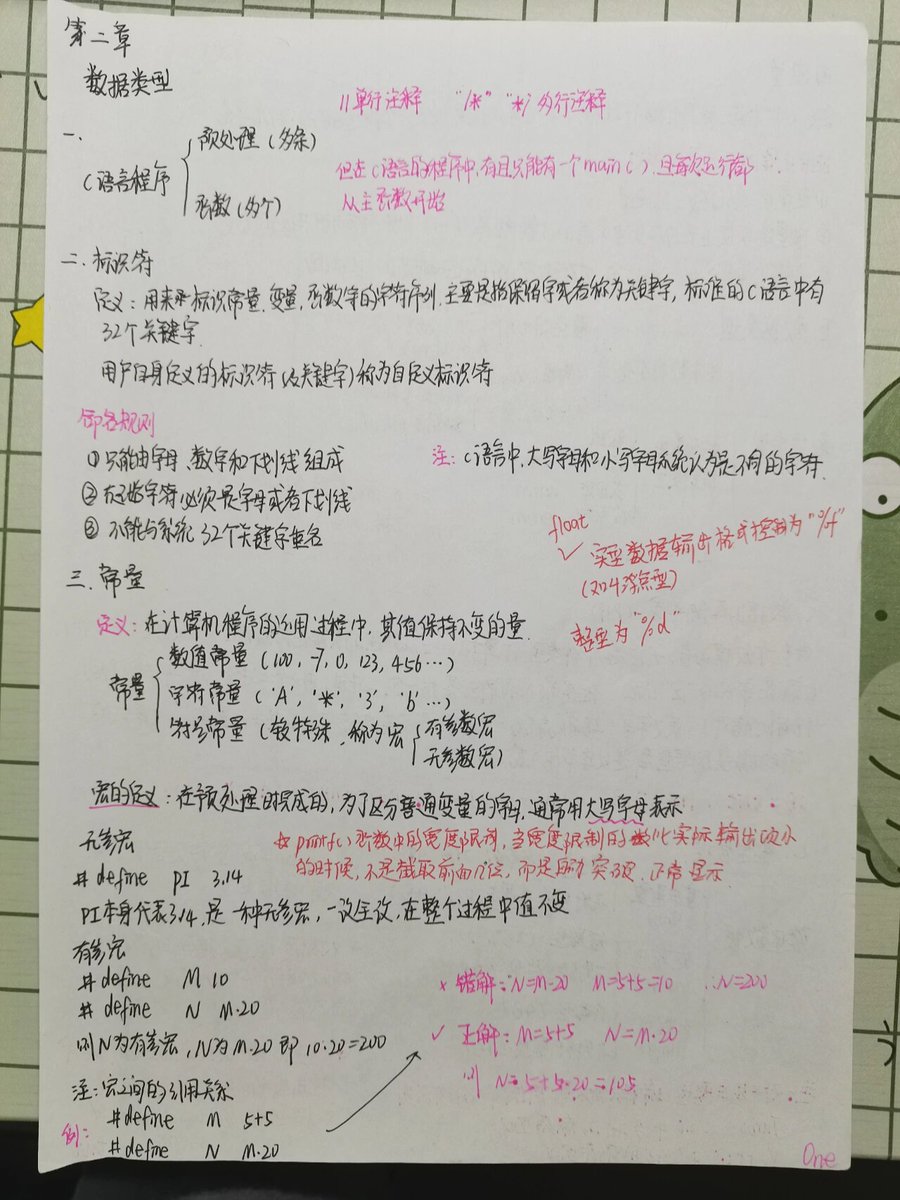 第二章
数据类型
//单行注释 "/*" "*/ 多行注释
一、
C语言程序
预处理(多条)
函数(多个)
但在C语言的程序中,有且只能有一个main(),且每次运行都
从主函数开始
二、标识符
定义:用来标识常量、变量、函数等的字符序列.主要是指保留字或者称为关键字,标准的C语言中有
32个关键字.
用户自身定义的标识符(及关键字)称为自定义标识符
命名规则
①只能由字母、数字和下划线组成
注:C语言中,大写字母和小写字母系统认为是不同的字符.
②起始字符必须是字母或者下划线
③不能与系统32个关键字重名
float
✓实型数据输出格式控制为"%f"
(又叫浮点型)
整型为"%d"
三、常量
定义:在计算机程序的运用过程中,其值保持不变的量.
常量
数值常量(100,-7,0,123,456…)
字符常量('A','*','3','b'…)
符号常量(较特殊,称为宏
有参数宏
无参数宏)
宏的定义:在预处理时完成的,为了区分普通变量的字母,通常用大写字母表示
无参宏
*printf()函数中的宽度限制,当宽度限制的数比实际输出
的时候,不是截取前面几位,而是自动突破,正常显示.
#define PI 3.14
PI本身代表3.14,是一种无参宏,一改全改,在整个过程中值不变
有参宏
#define M 10
#define N M·20
则N为有参宏,N为M·20即10·20=200
注:宏之间的引用关系
例:
#define M 5+5
#define N M·20
×错解:N=M·20 M=5+5=10 ∴N=200
✓正解:M=5+5 N=M·20
则 N=5+5·20=105
One